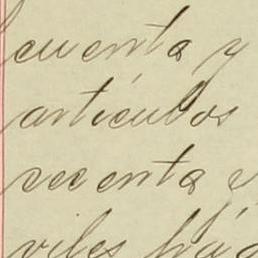 cuenta y
artículos
secenta y
viles há